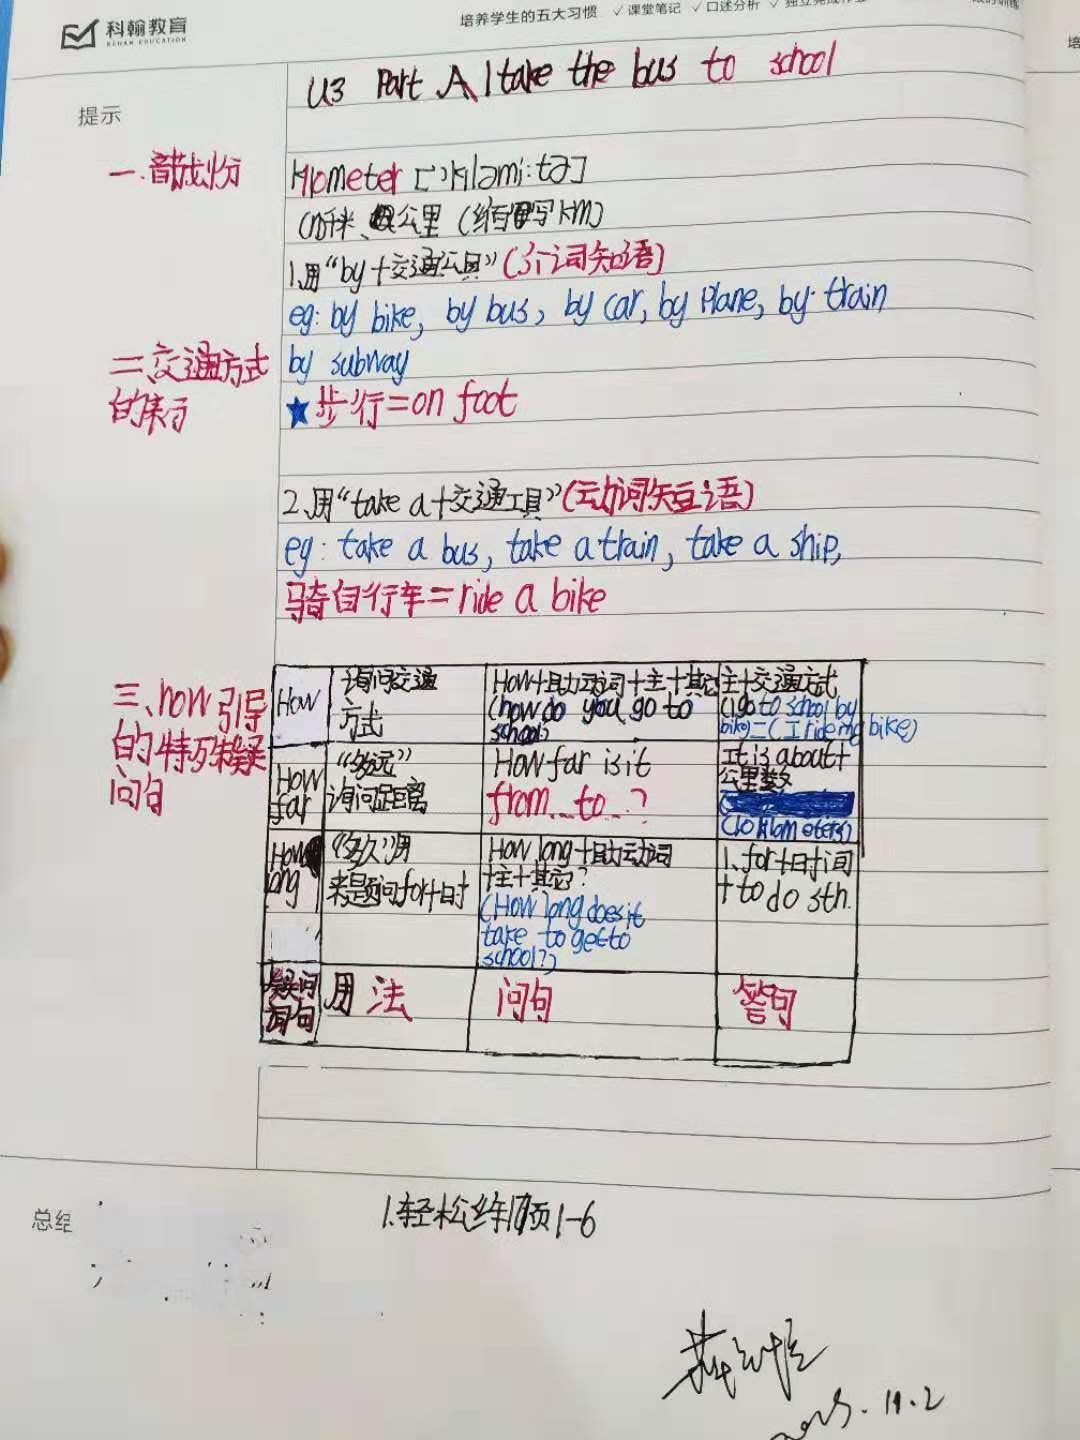 科翰教育
KEHAN EDUCATION
培养学生的五大习惯 ✓课堂笔记 ✓口述分析
U3 Part A I take the bus to school
提示
kilometer
(n)千米、公里 (缩写km)
1.用“by+交通工具”(介词短语)
eg: by bike, by bus, by car, by Plane, by train
by subway
二、交通方式
的表示
★步行=on foot
2.用“take a+交通工具”(动词短语)
eg: take a bus, take a train, take a ship,
骑自行车=ride a bike
三、how引导
的特殊疑
问句
How
询问交通
方式
How+助动词+主+其它
(how do you go to
school?)
主+交通方式
(I go to school by
bike)=(I ride my bike)
How
far
“多远”
询问距离
How far is it
from...to...?
It is about+
公里数
(10 kilometers)
How
long
“多久”用
来提问for+时
How long+助动词
+主+其它?
(How long does it
take to get to
school?)
1.for+时间
+to do sth.
疑问
词句
用法
问句
答句
总结
1.轻松练17页1-6
11.2